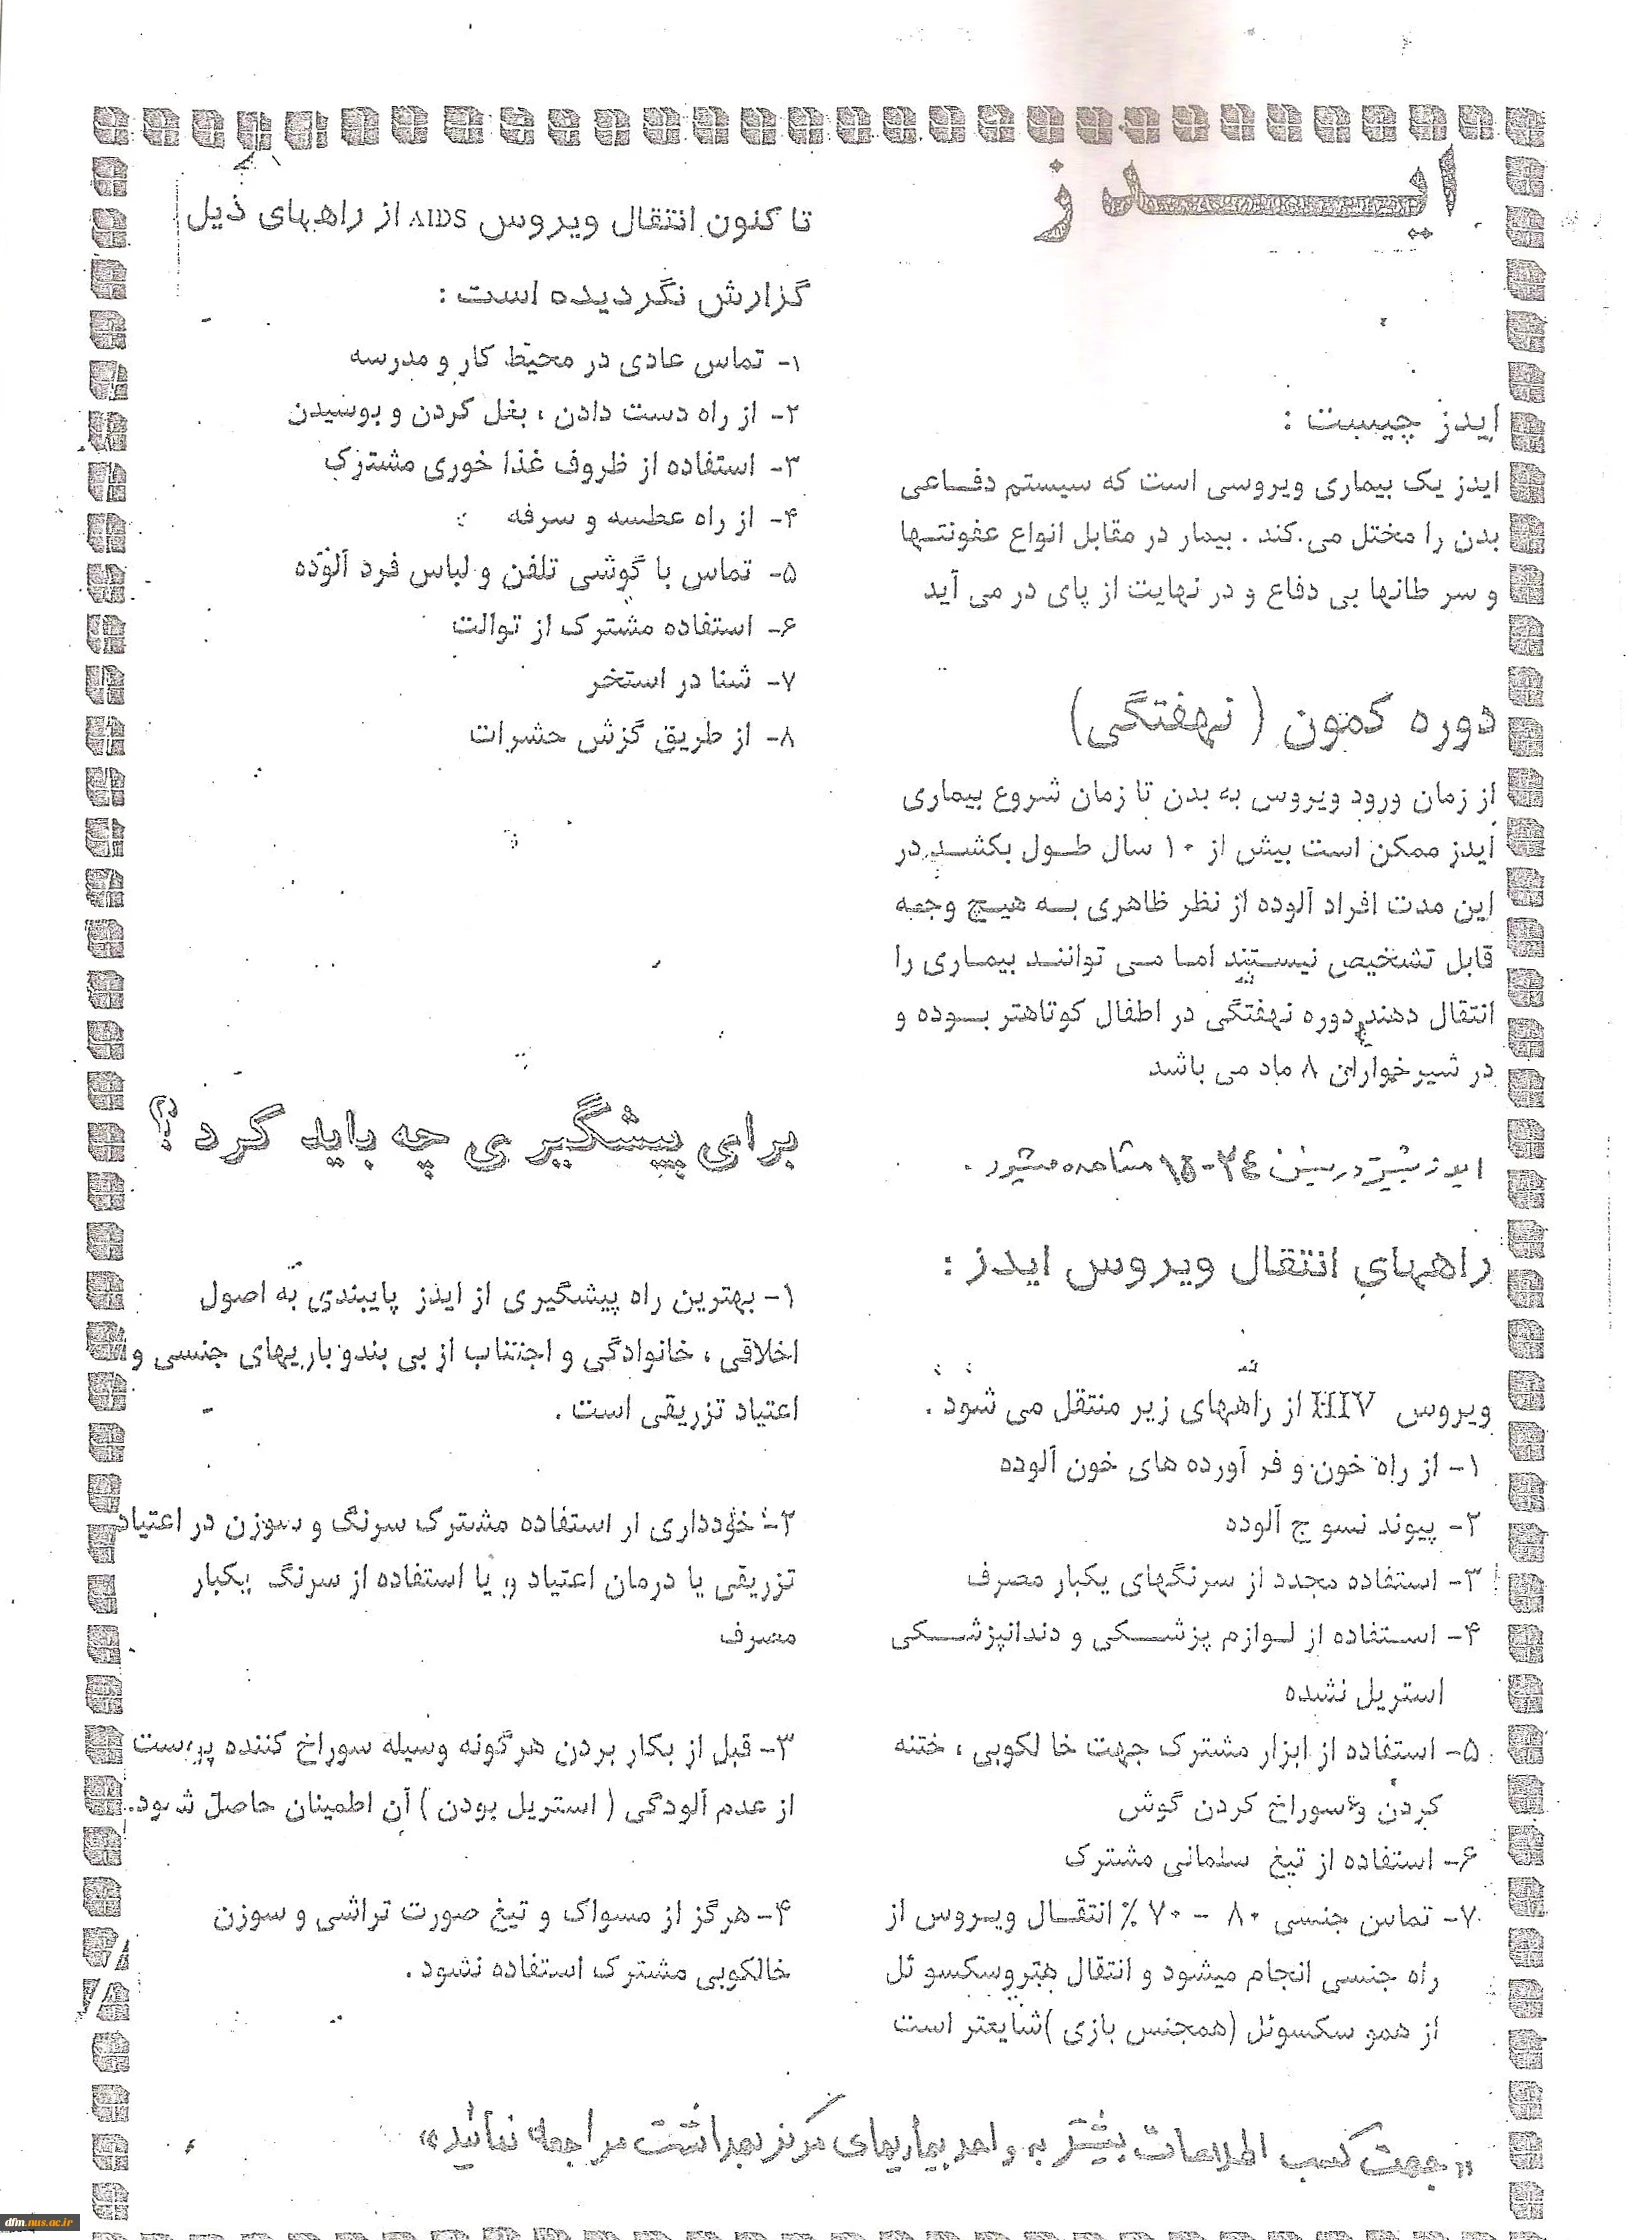 ایــــدز
ایدز چیست :
ایدز یک بیماری ویروسی است که سیستم دفـاعی
بدن را مختل می کند . بیمار در مقابل انواع عفونتـها
و سر طانها بی دفاع و در نهایت از پای در می آید
دوره کمون ( نهفتگی)
از زمان ورود ویروس به بدن تا زمان شروع بیماری
ایدز ممکن است بیش از ۱۰ سال طـول بکشـد در
این مدت افراد آلوده از نظر ظاهری بـه هیـچ وجـه
قابل تشخیص نیسـتند امـا مـی تواننـد بیمـاری را
انتقال دهند دوره نهفتگی در اطفال کوتاهتر بـوده و
در شیر خواران ۸ ماه می باشد
ایدز بیشتر در سنین ۲۴-۱۵ مشاهده میشود .
راههای انتقال ویروس ایدز :
ویروس HIV از راههای زیر منتقل می شود .
۱- از راه خون و فر آورده های خون آلوده
۲- پیوند نسو ج آلوده
۳- استفاده مجدد از سرنگهای یکبار مصرف
۴- اسـتفاده از لـوازم پزشـکی و دندانپزشـکی
استریل نشده
۵- استفاده از ابزار مشترک جهت خا لکوبی ، ختنه
کردن و سوراخ کردن گوش
۶- استفاده از تیغ سلمانی مشترک
۷- تماس جنسی ۸۰ - ۷۰ % انتقـال ویـروس از
راه جنسی انجام میشود و انتقال هتروسکسو ئل
از همو سکسوئل (همجنس بازی )شایعتر است
تا کنون انتقال ویروس AIDS از راههای ذیل
گزارش نگردیده است :
۱- تماس عادی در محیط کار و مدرسه
۲- از راه دست دادن ، بغل کردن و بوسیدن
۳- استفاده از ظروف غذا خوری مشترک
۴- از راه عطسه و سرفه
۵- تماس با گوشی تلفن و لباس فرد آلوده
۶- استفاده مشترک از توالت
۷- شنا در استخر
۸- از طریق گزش حشرات
برای پیشگیر ی چه باید کرد ؟
۱- بهترین راه پیشگیری از ایدز پایبندی به اصول
اخلاقی ، خانوادگی و اجتناب از بی بندو باریهای جنسی و
اعتیاد تزریقی است .
۲- خودداری از استفاده مشترک سرنگ و سوزن در اعتیاد
تزریقی یا درمان اعتیاد و یا استفاده از سرنگ یکبار
مصرف
۳- قبل از بکار بردن هر گونه وسیله سوراخ کننده پوست
از عدم آلودگی ( استریل بودن ) آن اطمینان حاصل شود.
۴- هرگز از مسواک و تیغ صورت تراشی و سوزن
خالکوبی مشترک استفاده نشود .
«جهت کسب اطلاعات بیشتر به واحد بیماریهای مرکز بهداشت مراجعه نمائید»
dfm.nus.ac.ir